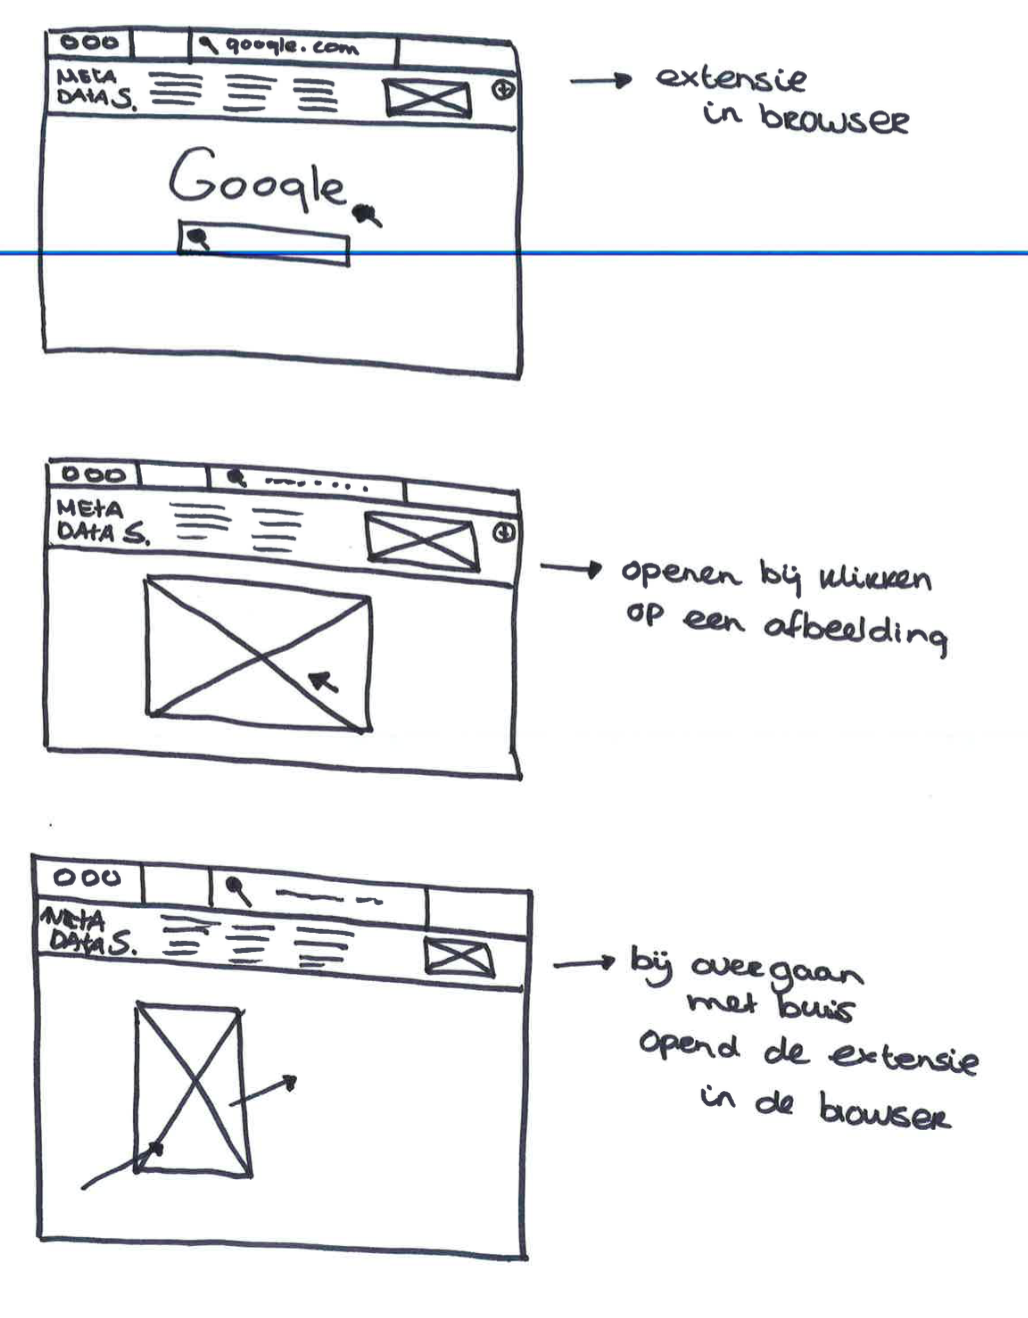 google.com
META
DATA S.
Google
→ extensie
in browser
META
DATA S.
→ openen bij klikken
op een afbeelding
META
DATA S.
→ bij overgaan
met buis
opend de extensie
in de browser